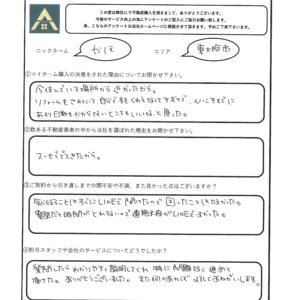 この度は弊社にて不動産購入を頂きまして、ありがとうございます。
今後のサービス向上の為にアンケートのご記入にご協力お願い致します。
尚、こちらのアンケートは当社ホームページに掲載させて頂きます。予めご了承下さいませ。
ニックネーム かほ エリア 東大阪市
①マイホーム購入の決意をされた理由についてお聞かせ下さい。
今住んでいて場所から近かったから。
リフォームもされていて、自分
お金
②数ある不動産業者の中から当社を選ばれた理由をお聞かせ下さい。
スーモででてきたから。
③ご契約から引き渡しまでの間不安や不満、また良かった点はございますか?
気になることはすぐにLINEで聞けたので困ったことはなかった。
電話だと時間がとれないので連絡手段がLINEでよかった。
④担当スタッフや会社のサービスについてどうでしたか?
質問したらわかりやすく説明してくれ、特に問題なく進めて
頂けた。ありがとうございました。また何かあればよろしくおねがいします。